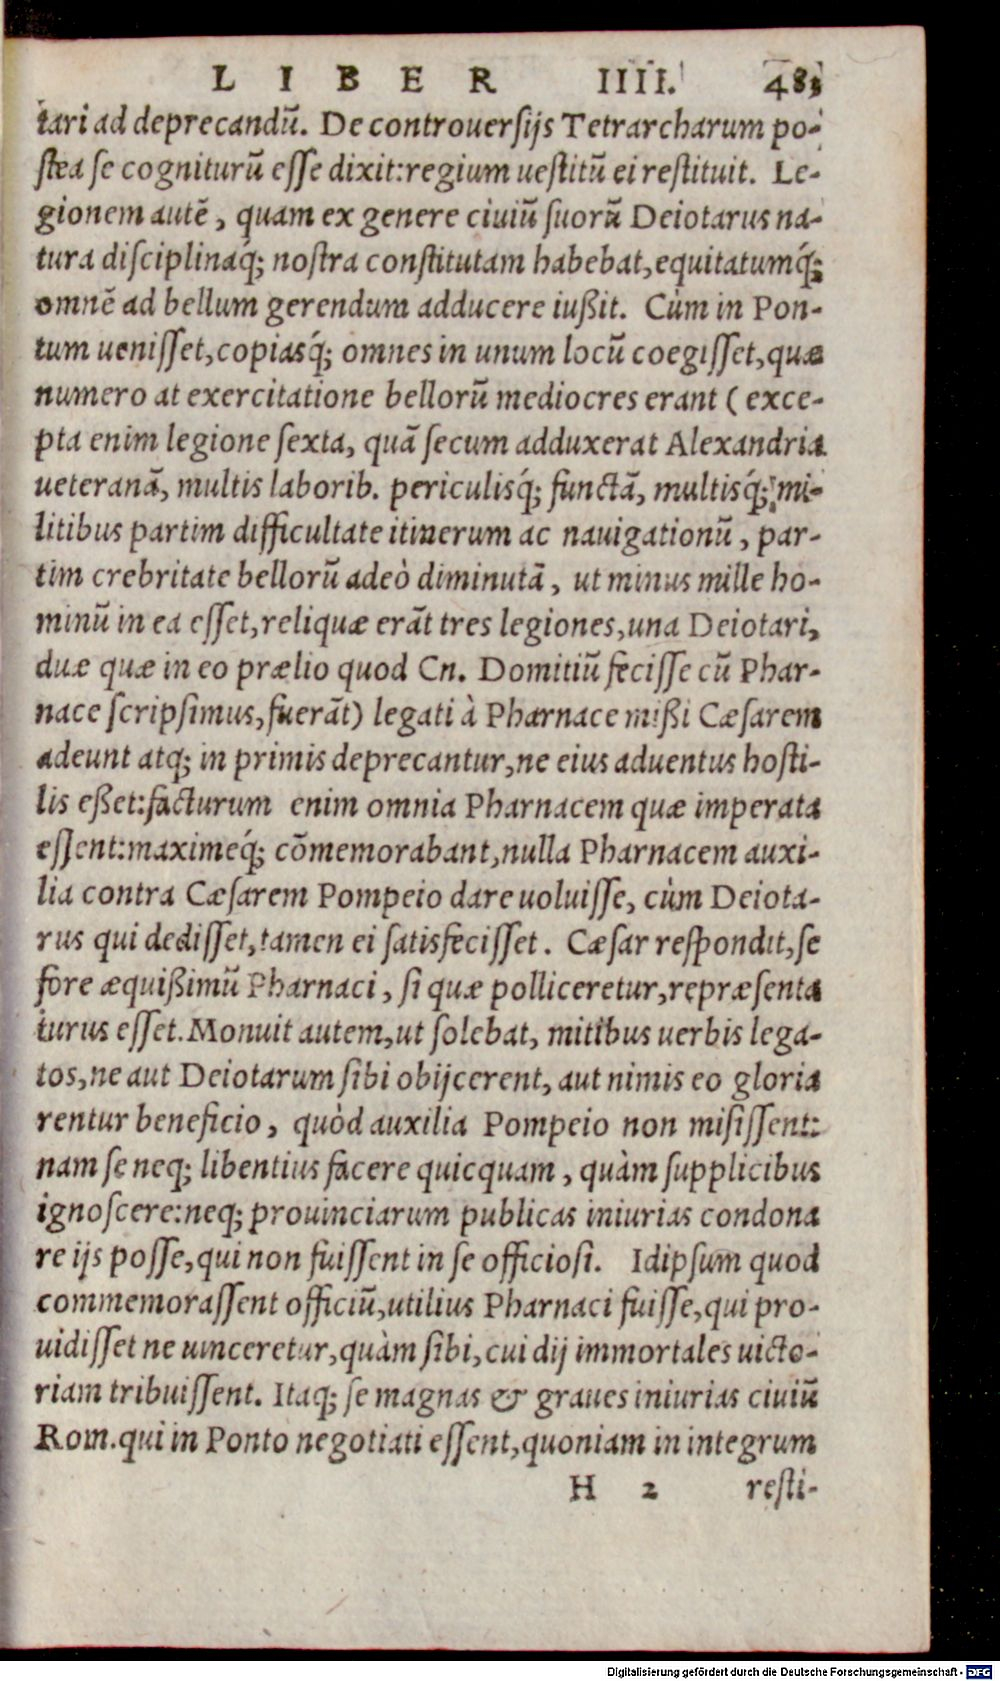 LIBER IIII. 483
tari ad deprecandũ. De controuerſijs Tetrarcharum po-
ſtea ſe cogniturũ eſſe dixit:regium ueſtitũ ei reſtituit. Le-
gionem autẽ, quam ex genere ciuiũ ſuorũ Deiotarus na-
tura diſciplinaq́; noſtra conſtitutam habebat,equitatumq́;
omnẽ ad bellum gerendum adducere iußit. Cùm in Pon-
tum ueniſſet,copiasq́; omnes in unum locũ coegiſſet,quæ
numero at exercitatione bellorũ mediocres erant ( exce-
pta enim legione ſexta, quã ſecum adduxerat Alexandria
ueteranã, multis laborib. periculisq́; functã, multisq́; mi-
litibus partim difficultate itinerum ac nauigationũ, par-
tim crebritate bellorũ adeò diminutã, ut minus mille ho-
minũ in ea eſſet,reliquæ erãt tres legiones,una Deiotari,
duæ quæ in eo prælio quod Cn. Domitiũ feciſſe cũ Phar-
nace ſcripſimus,fuerãt) legati à Pharnace mißi Cæſarem
adeunt atq; in primis deprecantur,ne eius aduentus hoſti-
lis eßet:facturum enim omnia Pharnacem quæ imperata
eſſent:maximeq́; cõmemorabant,nulla Pharnacem auxi-
lia contra Cæſarem Pompeio dare uoluiſſe, cùm Deiota-
rus qui dediſſet,tamen ei ſatisfeciſſet. Cæſar reſpondit,ſe
fore æquißimũ Pharnaci, ſi quæ polliceretur,repræſenta
turus eſſet.Monuit autem,ut ſolebat, mitibus uerbis lega-
tos,ne aut Deiotarum ſibi obijcerent, aut nimis eo gloria
rentur beneficio, quòd auxilia Pompeio non miſiſſent:
nam ſe neq; libentius facere quicquam, quàm ſupplicibus
ignoſcere:neq; prouinciarum publicas iniurias condona
re ijs poſſe,qui non fuiſſent in ſe officioſi. Idipſum quod
commemoraſſent officiũ,utilius Pharnaci fuiſſe,qui pro-
uidiſſet ne uinceretur,quàm ſibi,cui dij immortales uicto-
riam tribuiſſent. Itaq; ſe magnas & graues iniurias ciuiũ
Rom.qui in Ponto negotiati eſſent,quoniam in integrum
H 2 reſti-
Digitalisierung gefördert durch die Deutsche Forschungsgemeinschaft - DFG